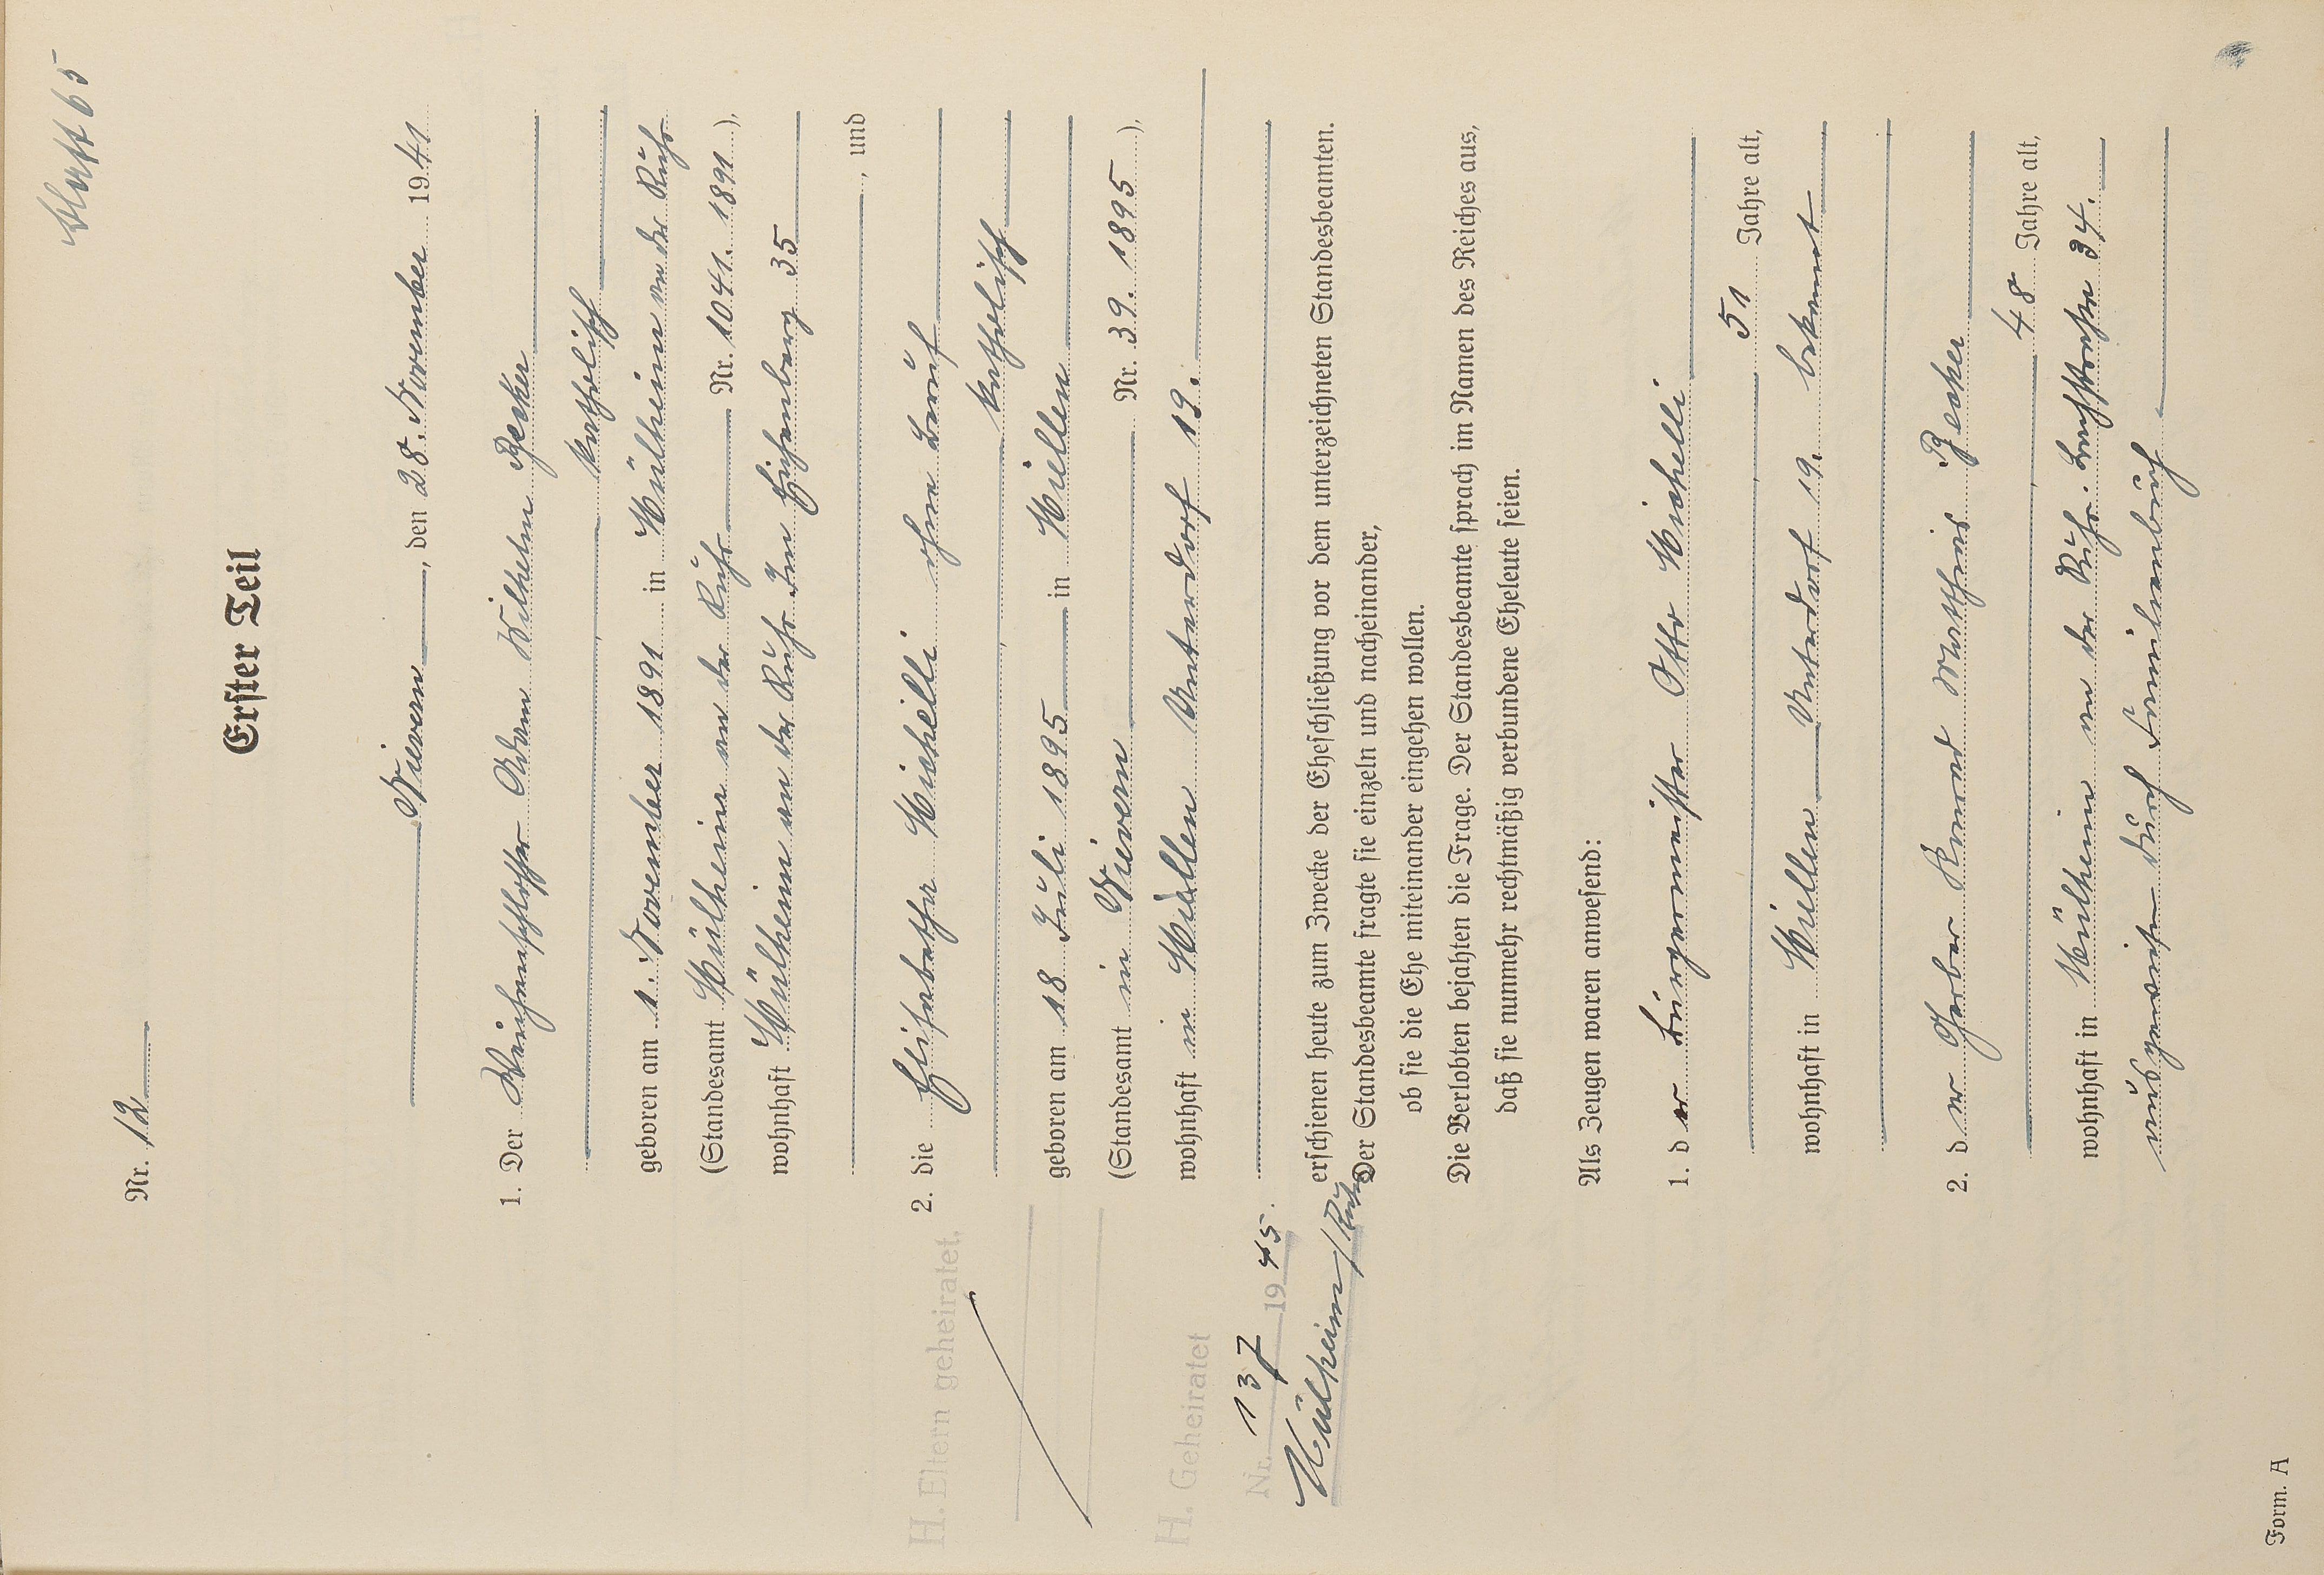 Blatt 65
Nr. 12
Erster Teil
Nievern, den 28. November 1941
1. Der Maschinenschlosser Adam Wilhelm Becker
katholisch
geboren am 1. November 1891 in Mülheim an der Ruhr
(Standesamt Mülheim an der Ruhr Nr. 1041. 1891),
wohnhaft Mülheim an der Ruhr Im Eichenberg 35
, und
2. die Elisabetha Michelli ohne Beruf
katholisch
geboren am 18 Juli 1895 in Miellen
(Standesamt in Nievern Nr. 39. 1895),
wohnhaft in Miellen Unterdorf 19.
erschienen heute zum Zwecke der Eheschließung vor dem unterzeichneten Standesbeamten.
Der Standesbeamte fragte sie einzeln und nacheinander,
ob sie die Ehe miteinander eingehen wollen.
Die Verlobten bejahten die Frage. Der Standesbeamte sprach im Namen des Reiches aus,
daß sie nunmehr rechtmäßig verbundene Eheleute seien.
Als Zeugen waren anwesend:
1. der Bürgermeister Otto Michelli
51 Jahre alt,
wohnhaft in Miellen Unterdorf 19. bekannt
2. der Gerber Konrad Matthias Becker
48 Jahre alt,
wohnhaft in Mülheim an der Ruhr. Bachstraße 34.
ausgewiesen durch Familienbuch
H. Eltern geheiratet,
H. Geheiratet
Nr. 137 1945.
Mülheim/Ruhr
Form. A